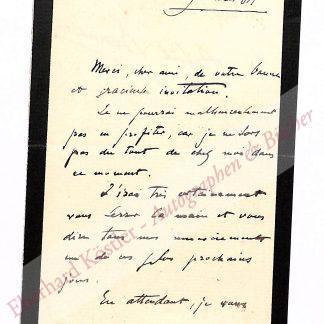 Merci, cher ami, de votre bonne
et gracieuse invitation.
Je ne pourrai malheureusement
pas en profiter, car je ne sors
pas du tout de chez moi dans
ce moment.
J'irai très certainement
vous serrer la main et vous
dire tous mes remerciements
un de ces plus prochains
jours.
En attendant, je vous
Eberhard Köstler - Autographen & Bücher